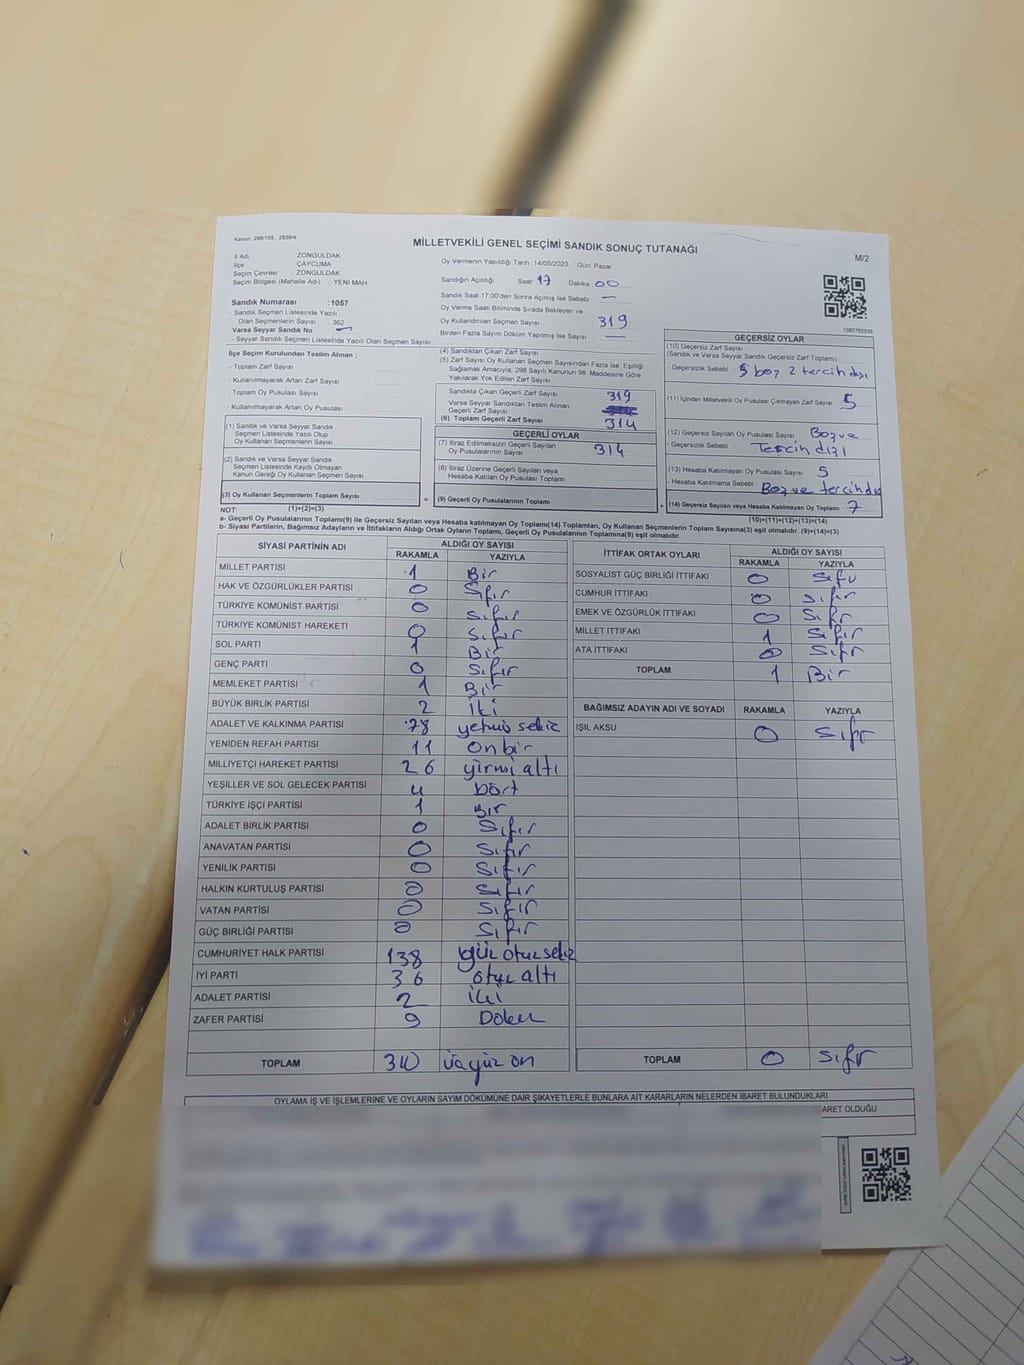 Kanun: 298/105 , 2839/4
MİLLETVEKİLİ GENEL SEÇİMİ SANDIK SONUÇ TUTANAĞI
M/2
İl Adı : ZONGULDAK
İlçe : ÇAYCUMA
Seçim Çevresi : ZONGULDAK
Seçim Bölgesi (Mahalle Adı) : YENI MAH
Oy Vermenin Yapıldığı Tarih :14/05/2023 Gün: Pazar
Sandığın Açıldığı Saat 17 Dakika 00
Sandık Saat 17.00'den Sonra Açımış İse Sebebi —
Oy Verme Saati Bitiminde Sırada Bekleyen ve
Oy Kullandırılan Seçmen Sayısı 319
Birden Fazla Sayım Döküm Yapılmış İse Sayısı —
1083782538
Sandık Numarası :1057
- Sandık Seçmen Listesinde Yazılı
Olan Seçmenlerin Sayısı : 362
Varsa Seyyar Sandık No —
- Seyyar Sandık Seçmen Listesinde Yazılı Olan Seçmen Sayısı:
İlçe Seçim Kurulundan Teslim Alınan ;
- Toplam Zarf Sayısı
- Kullanılmayarak Artan Zarf Sayısı
- Toplam Oy Pusulası Sayısı
- Kullanılmayarak Artan Oy Pusulası
(1) Sandık ve Varsa Seyyar Sandık
Seçmen Listesinde Yazılı Olup
Oy Kullanan Seçmenlerin Sayısı
(2) Sandık ve Varsa Seyyar Sandık
Seçmen Listesinde Kayıtlı Olmayan
Kanun Gereği Oy Kullanan Seçmen Sayısı
(3) Oy Kullanan Seçmenlerin Toplam Sayısı
(1)+(2)=(3)
(4) Sandıktan Çıkan Zarf Sayısı
(5) Zarf Sayısı Oy Kullanan Seçmen Sayısından Fazla İse, Eşitliği
Sağlamak Amacıyla; 298 Sayılı Kanunun 98. Maddesine Göre
Yakılarak Yok Edilen Zarf Sayısı
Sandıkta Çıkan Geçerli Zarf Sayısı 319
Varsa Seyyar Sandıktan Teslim Alınan
Geçerli Zarf Sayısı
(6) Toplam Geçerli Zarf Sayısı 314
GEÇERLİ OYLAR
(7) İtiraz Edilmeksizin Geçerli Sayılan
Oy Pusulalarının Sayısı 314
(8) İtiraz Üzerine Geçerli Sayılan veya
Hesaba Katılan Oy Pusulası Toplamı
= (9) Geçerli Oy Pusulalarının Toplamı
GEÇERSİZ OYLAR
(10) Geçersiz Zarf Sayısı
(Sandık ve Varsa Seyyar Sandık Geçersiz Zarf Toplamı)
- Geçersizlik Sebebi 5 boş 2 tercih dışı
(11) İçinden Milletvekili Oy Pusulası Çıkmayan Zarf Sayısı 5
(12) Geçersiz Sayılan Oy Pusulası Sayısı Boş ve
- Geçersizlik Sebebi Tercih dışı
(13) Hesaba Katılmayan Oy Pusulası Sayısı 5
- Hesaba Katılmama Sebebi Boş ve tercih dışı
+ (14) Geçersiz Sayılan veya Hesaba Katılmayan Oy Toplamı 7
(10)+(11)+(12)+(13)=(14)
NOT:
a- Geçerli Oy Pusulalarının Toplamı(9) ile Geçersiz Sayılan veya Hesaba katılmayan Oy Toplamı(14) Toplamları, Oy Kullanan Seçmenlerin Toplam Sayısına(3) eşit olmalıdır. (9)+(14)=(3)
b- Siyasi Partilerin, Bağımsız Adayların ve İttifakların Aldığı Ortak Oyların Toplamı, Geçerli Oy Pusulalarının Toplamına(9) eşit olmalıdır.
SİYASİ PARTİNİN ADI ALDIĞI OY SAYISI
RAKAMLA YAZIYLA
MİLLET PARTİSİ 1 Bir
HAK VE ÖZGÜRLÜKLER PARTİSİ 0 Sıfır
TÜRKİYE KOMÜNİST PARTİSİ 0 Sıfır
TÜRKİYE KOMÜNİST HAREKETİ 0 Sıfır
SOL PARTİ 1 Bir
GENÇ PARTİ 0 Sıfır
MEMLEKET PARTİSİ 1 Bir
BÜYÜK BİRLİK PARTİSİ 2 İki
ADALET VE KALKINMA PARTİSİ 78 yetmiş sekiz
YENİDEN REFAH PARTİSİ 11 on bir
MİLLİYETÇİ HAREKET PARTİSİ 26 yirmi altı
YEŞİLLER VE SOL GELECEK PARTİSİ 4 Dört
TÜRKİYE İŞÇİ PARTİSİ 1 Bır
ADALET BİRLİK PARTİSİ 0 Sıfır
ANAVATAN PARTİSİ 0 Sıfır
YENİLİK PARTİSİ 0 Sıfır
HALKIN KURTULUŞ PARTİSİ 0 Sıfır
VATAN PARTİSİ 0 Sıfır
GÜÇ BİRLİĞİ PARTİSİ 0 Sıfır
CUMHURİYET HALK PARTİSİ 138 yüz otuz sekiz
İYİ PARTİ 36 otuz altı
ADALET PARTİSİ 2 iki
ZAFER PARTİSİ 9 Dokuz
TOPLAM 310 üçyüz on
İTTİFAK ORTAK OYLARI ALDIĞI OY SAYISI
RAKAMLA YAZIYLA
SOSYALİST GÜÇ BİRLİĞİ İTTİFAKI 0 Sıfır
CUMHUR İTTİFAKI 0 Sıfır
EMEK VE ÖZGÜRLÜK İTTİFAKI 0 Sıfır
MİLLET İTTİFAKI 1 Sıfır
ATA İTTİFAKI 0 Sıfır
TOPLAM 1 Bir
BAĞIMSIZ ADAYIN ADI VE SOYADI RAKAMLA YAZIYLA
IŞIL AKSU 0 Sıfır
TOPLAM 0 Sıfır
OYLAMA İŞ VE İŞLEMLERİNE VE OYLARIN SAYIM DÖKÜMÜNE DAİR ŞİKAYETLERLE BUNLARA AİT KARARLARIN NELERDEN İBARET BULUNDUKLARI
ARET OLDUĞU